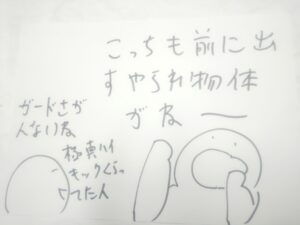 こっちも前に出
すやられ物体
がな一
ガードさが
んない君
極真ハイ
キックくらっ
てた人